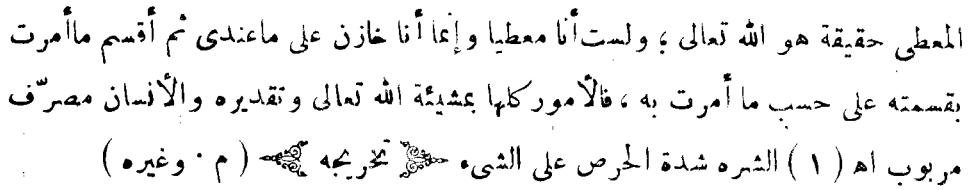 المعطى حقيقة هو الله تعالى ؛ ولست أنا معطيا وإنما أنا خازن على ماعندى ثم أقسم ماأمرت
بقسمته على حسب ما أمرت به ، فالأمور كلها بمشيئة الله تعالى وتقديره والأنسان مصرّف
مربوب اه ( ١ ) الشره شدة الحرص على الشىء ﴿ تخريجه ﴾ ( م · وغيره )